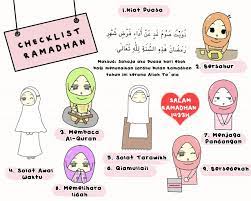 CHECKLIST
RAMADHAN
1.Niat Puasa
نَوَيْتُ صَوْمَ غَدٍ عَنْ أَدَاءِ فَرْضِ شَهْرِ
رَمَضَانَ هَذِهِ السَّنَةِ لِلَّهِ تَعَالَى
Maksud: Sahaja aku puasa hari esok
bagi menunaikan fardhu bulan Ramadhan
tahun ini kerana Allah Ta'ala
2. Bersahur
3. Membaca
Al-Quran
SALAM
RAMADHAN
1433H
4. Solat Awal
Waktu
5. Solat Tarawikh
6. Qiamullail
7. Menjaga
Pandangan
8. Memelihara
lidah
9. Bersedekah